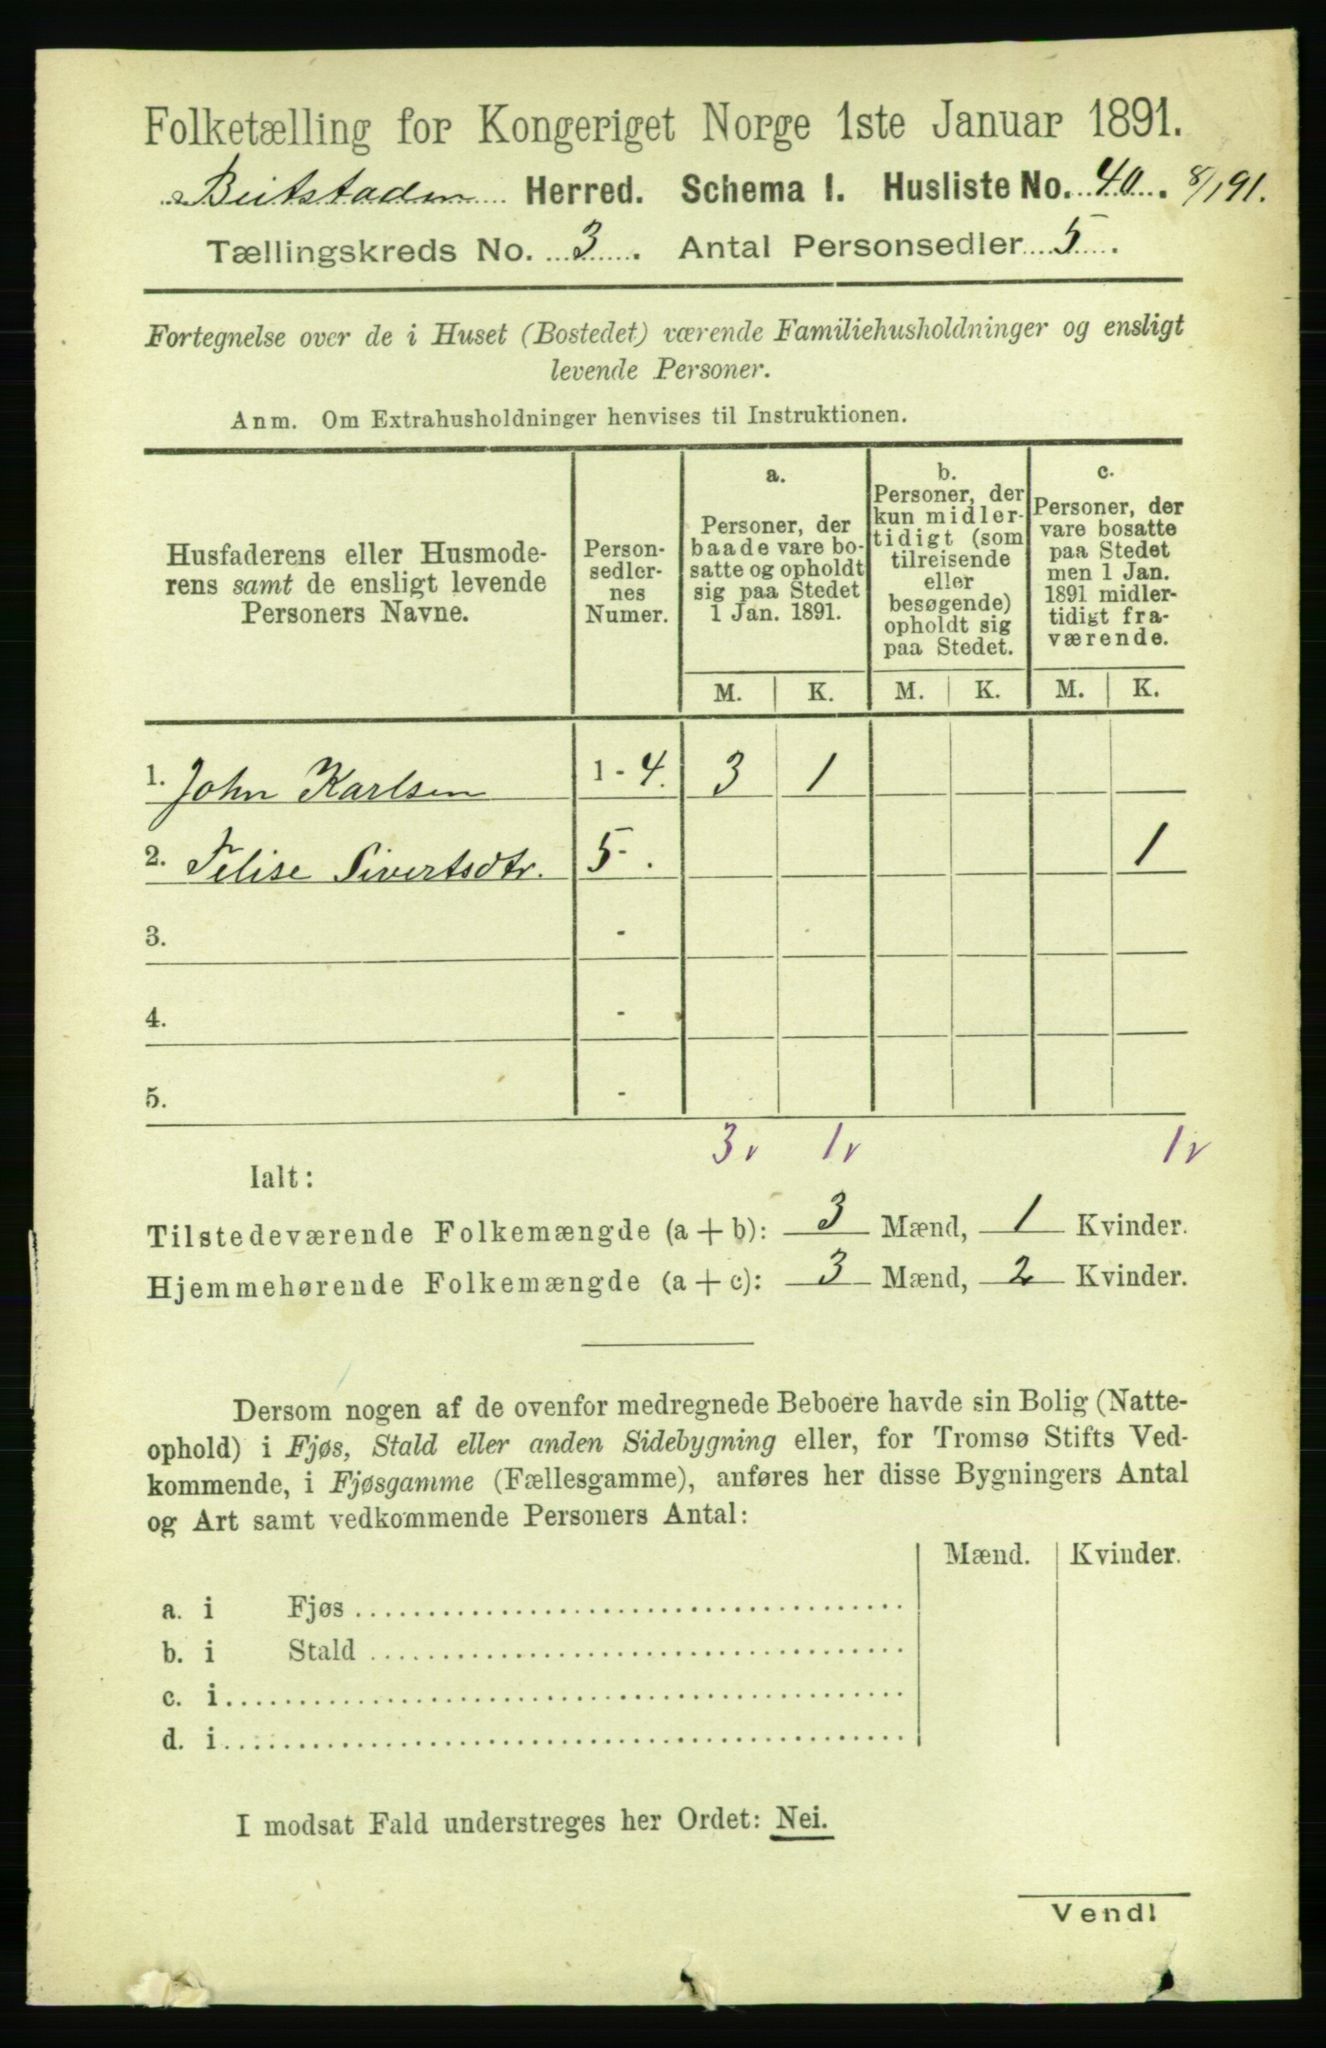 Folketælling for Kongeriget Norge 1ste Januar 1891.
Beitstaden Herred. Schema I. Husliste No. 40. 8/1 91.
Tællingskreds No. 3. Antal Personsedler 5.
Fortegnelse over de i Huset (Bostedet) værende Familiehusholdninger og ensligt
levende Personer.
Anm. Om Extrahusholdninger henvises til Instruktionen.
Husfaderens eller Husmode-
rens samt de ensligt levende
Personers Navne.
Person-
sedler-
nes
Numer.
a.
Personer, der
baade vare bo-
satte og opholdt
sig paa Stedet
1 Jan. 1891.
b.
Personer, der
kun midler-
tidigt (som
tilreisende
eller
besøgende)
opholdt sig
paa Stedet.
c.
Personer, der
vare bosatte
paa Stedet
men 1 Jan.
1891 midler-
tidigt fra-
værende.
M. K. M. K. M. K.
1. John Karlsen 1 - 4. 3 1
2. Felise Sivertsdtr. 5 - . 1
3. -
4. -
5. -
3 v 1 v 1 v
Ialt:
Tilstedeværende Folkemængde (a + b): 3 Mænd, 1 Kvinder.
Hjemmehørende Folkemængde (a + c): 3 Mænd, 2 Kvinder.
Dersom nogen af de ovenfor medregnede Beboere havde sin Bolig (Natte-
ophold) i Fjøs, Stald eller anden Sidebygning eller, for Tromsø Stifts Ved-
kommende, i Fjøsgamme (Fællesgamme), anføres her disse Bygningers Antal
og Art samt vedkommende Personers Antal:
Mænd. Kvinder.
a. i Fjøs
b. i Stald
c. i
d. i
I modsat Fald understreges her Ordet: Nei.
Vend!